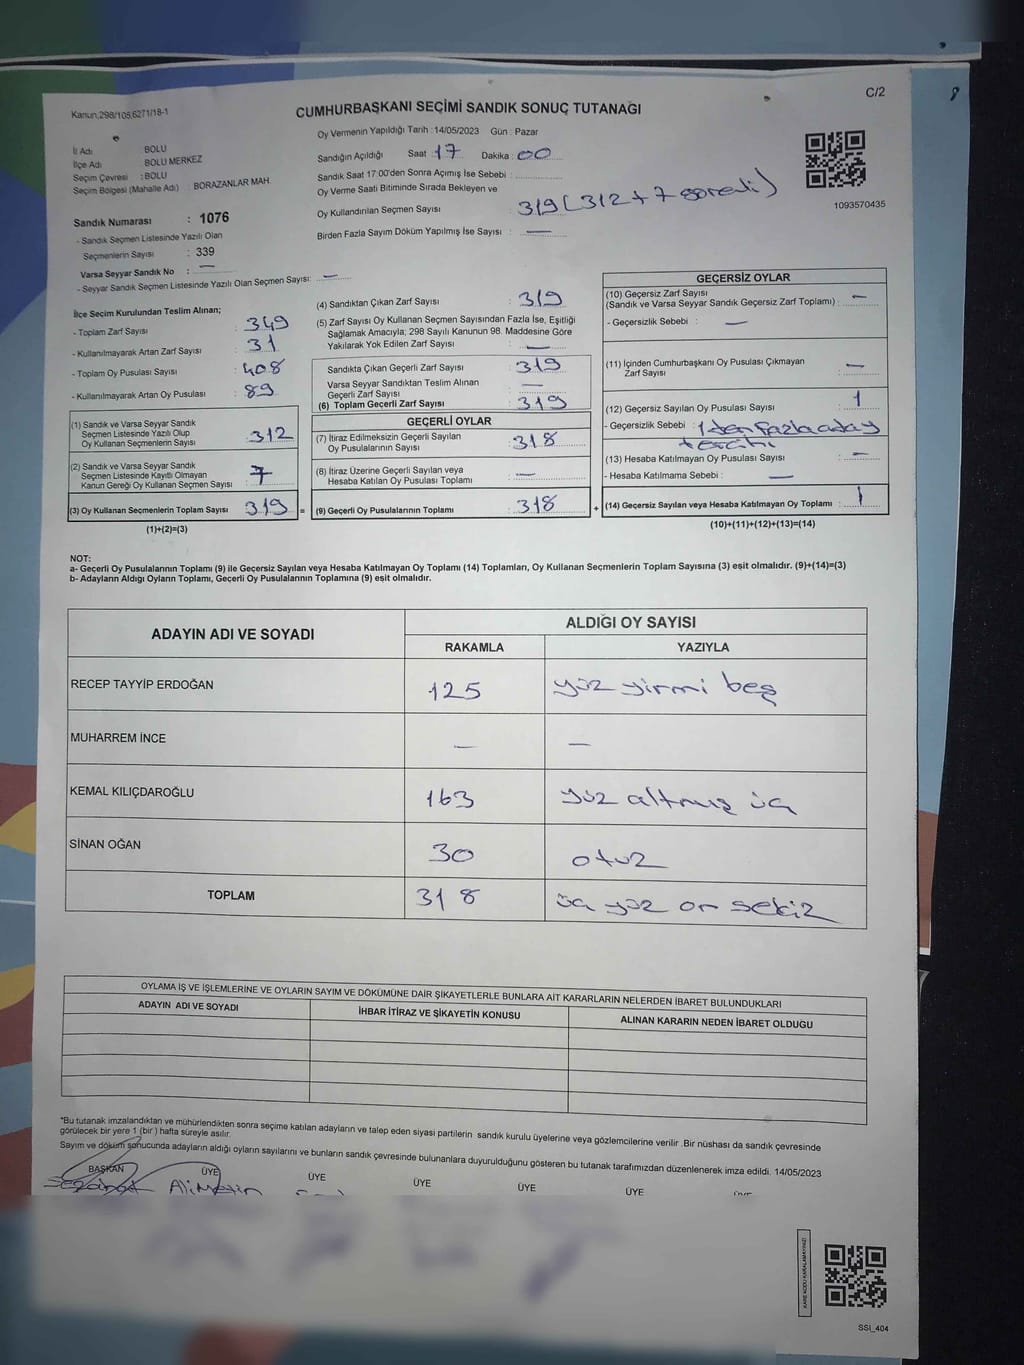 C/2
Kanun,298/105,6271/18-1
CUMHURBAŞKANI SEÇİMİ SANDIK SONUÇ TUTANAĞI
İl Adı : BOLU
İlçe Adı : BOLU MERKEZ
Seçim Çevresi : BOLU
Seçim Bölgesi (Mahalle Adı) : BORAZANLAR MAH.
Sandık Numarası : 1076
- Sandık Seçmen Listesinde Yazılı Olan
Seçmenlerin Sayısı : 339
Varsa Seyyar Sandık No : —
- Seyyar Sandık Seçmen Listesinde Yazılı Olan Seçmen Sayısı: —
Oy Vermenin Yapıldığı Tarih : 14/05/2023 Gün : Pazar
Sandığın Açıldığı Saat : 17 Dakika : 00
Sandık Saat 17:00'den Sonra Açımış İse Sebebi :
Oy Verme Saati Bitiminde Sırada Bekleyen ve
Oy Kullandırılan Seçmen Sayısı : 319 (312 + 7 görevli)
Birden Fazla Sayım Döküm Yapılmış İse Sayısı : —
1093570435
İlçe Seçim Kurulundan Teslim Alınan;
- Toplam Zarf Sayısı : 349
- Kullanılmayarak Artan Zarf Sayısı : 31
- Toplam Oy Pusulası Sayısı : 408
- Kullanılmayarak Artan Oy Pusulası : 89
(1) Sandık ve Varsa Seyyar Sandık
Seçmen Listesinde Yazılı Olup
Oy Kullanan Seçmenlerin Sayısı : 312
(2) Sandık ve Varsa Seyyar Sandık
Seçmen Listesinde Kayıtlı Olmayan
Kanun Gereği Oy Kullanan Seçmen Sayısı : 7
(3) Oy Kullanan Seçmenlerin Toplam Sayısı : 319 =
(1)+(2)=(3)
(4) Sandıktan Çıkan Zarf Sayısı : 319
(5) Zarf Sayısı Oy Kullanan Seçmen Sayısından Fazla İse, Eşitliği
Sağlamak Amacıyla; 298 Sayılı Kanunun 98. Maddesine Göre
Yakılarak Yok Edilen Zarf Sayısı : —
Sandıkta Çıkan Geçerli Zarf Sayısı : 319
Varsa Seyyar Sandıktan Teslim Alınan
Geçerli Zarf Sayısı : —
(6) Toplam Geçerli Zarf Sayısı : 319
GEÇERLİ OYLAR
(7) İtiraz Edilmeksizin Geçerli Sayılan
Oy Pusulalarının Sayısı : 318
(8) İtiraz Üzerine Geçerli Sayılan veya
Hesaba Katılan Oy Pusulası Toplamı : —
(9) Geçerli Oy Pusulalarının Toplamı : 318 +
GEÇERSİZ OYLAR
(10) Geçersiz Zarf Sayısı
(Sandık ve Varsa Seyyar Sandık Geçersiz Zarf Toplamı) : —
- Geçersizlik Sebebi : —
(11) İçinden Cumhurbaşkanı Oy Pusulası Çıkmayan
Zarf Sayısı : —
(12) Geçersiz Sayılan Oy Pusulası Sayısı : 1
- Geçersizlik Sebebi : 1 den fazla aday
tercihi
(13) Hesaba Katılmayan Oy Pusulası Sayısı : —
- Hesaba Katılmama Sebebi : —
(14) Geçersiz Sayılan veya Hesaba Katılmayan Oy Toplamı : 1
(10)+(11)+(12)+(13)=(14)
NOT:
a- Geçerli Oy Pusulalarının Toplamı (9) ile Geçersiz Sayılan veya Hesaba Katılmayan Oy Toplamı (14) Toplamları, Oy Kullanan Seçmenlerin Toplam Sayısına (3) eşit olmalıdır. (9)+(14)=(3)
b- Adayların Aldığı Oyların Toplamı, Geçerli Oy Pusulalarının Toplamına (9) eşit olmalıdır.
ADAYIN ADI VE SOYADI
ALDIĞI OY SAYISI
RAKAMLA YAZIYLA
RECEP TAYYİP ERDOĞAN 125 yüz yirmi beş
MUHARREM İNCE — —
KEMAL KILIÇDAROĞLU 163 yüz altmış üç
SİNAN OĞAN 30 otuz
TOPLAM 318 üç yüz on sekiz
OYLAMA İŞ VE İŞLEMLERİNE VE OYLARIN SAYIM VE DÖKÜMÜNE DAİR ŞİKAYETLERLE BUNLARA AİT KARARLARIN NELERDEN İBARET BULUNDUKLARI
ADAYIN ADI VE SOYADI İHBAR İTİRAZ VE ŞİKAYETİN KONUSU ALINAN KARARIN NEDEN İBARET OLDUĞU
*Bu tutanak imzalandıktan ve mühürlendikten sonra seçime katılan adayların ve talep eden siyasi partilerin sandık kurulu üyelerine veya gözlemcilerine verilir .Bir nüshası da sandık çevresinde
görülecek bir yere 1 (bir) hafta süreyle asılır.
Sayım ve döküm sonucunda adayların aldığı oyların sayılarını ve bunların sandık çevresinde bulunanlara duyurulduğunu gösteren bu tutanak tarafımızdan düzenlenerek imza edildi. 14/05/2023
BAŞKAN ÜYE ÜYE ÜYE ÜYE ÜYE
SSI_404